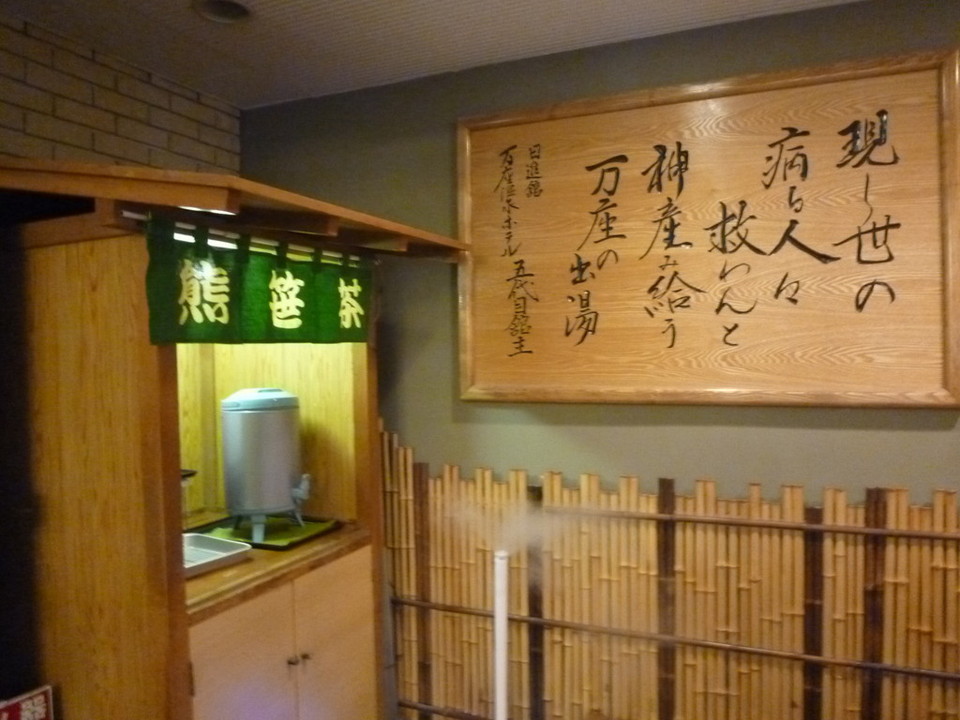 熊笹茶
現し世の
病る人々
救わんと
神産み給う
万座の
出湯
日進館
万座温泉ホテル 五代目館主